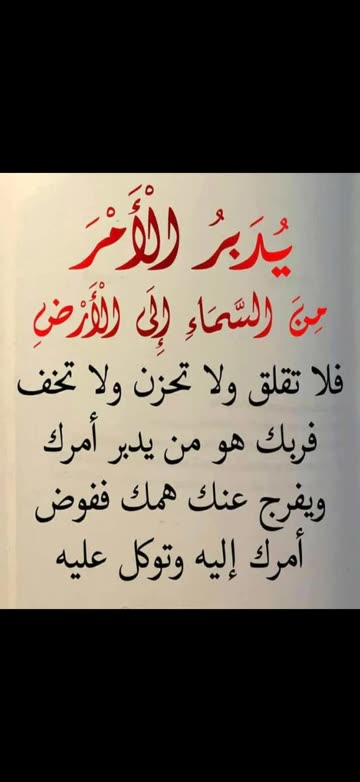 يُدَبرُ الْأَمْرَ
مِنَ السَّمَاءِ إِلَى الْأَرْضِ
فلا تقلق ولا تحزن ولا تخف
فربك هو من يدبر أمرك
ويفرج عنك همك ففوض
أمرك إليه وتوكل عليه